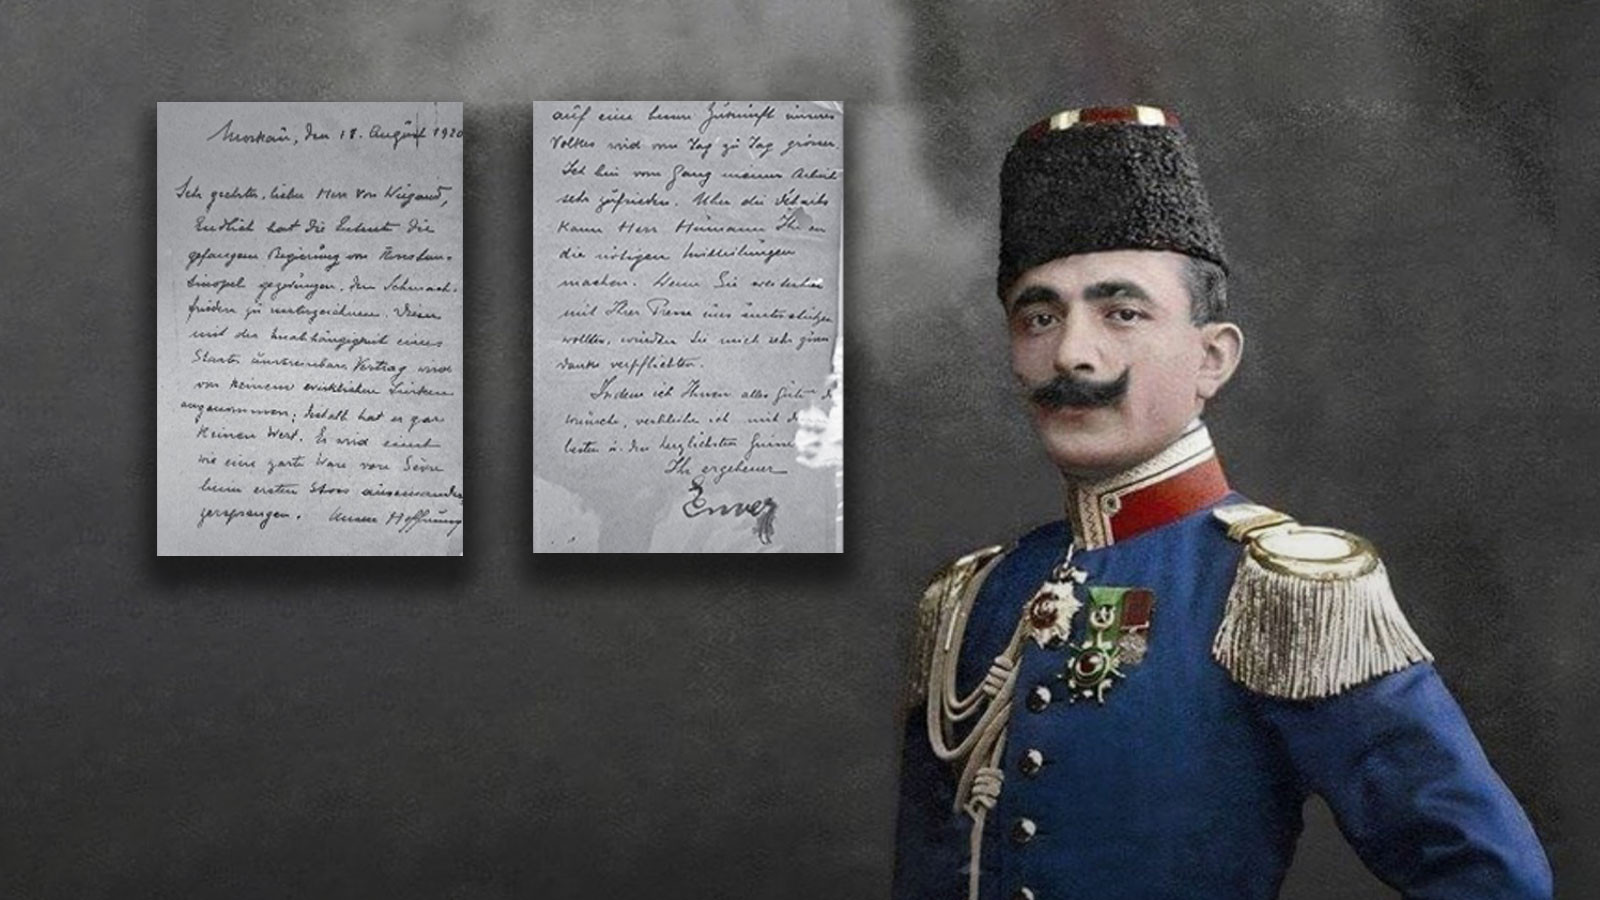 Moskau, den 18. August 1920
Sehr geehrter, lieber Herr von Wiegand,
Endlich hat die Entente die
gefangene Regierung von Konstan-
tinopel gezwungen, den Schmach-
frieden zu unterzeichnen. Dieser
mit der Unabhängigkeit eines
Staates Vertrag wird
von keinem wirklichen Türken
angenommen; deshalb hat er gar
keinen Wert. Er wird einst
wie eine zarte Ware von Sèvre
beim ersten Stoss auseinander
zersprangen. Unsere Hoffnung
auf eine bessere Zukunft unseres
Volkes wird von Tag zu Tag grösser.
Ich bin vom Gang meiner Arbeit
sehr zufrieden. Über die détails
kann Herr Humann Ihnen
die nötigen Mitteilungen
machen. Wenn Sie weiterhin
mit Ihrer Presse uns unterstützen
wollten, würden Sie mich sehr zum
danke verpflichten.
Indem ich Ihnen alles Gute
wünsche, verbleibe ich mit d
besten u. den herzlichsten Grüssen
Ihr ergebener
Enver